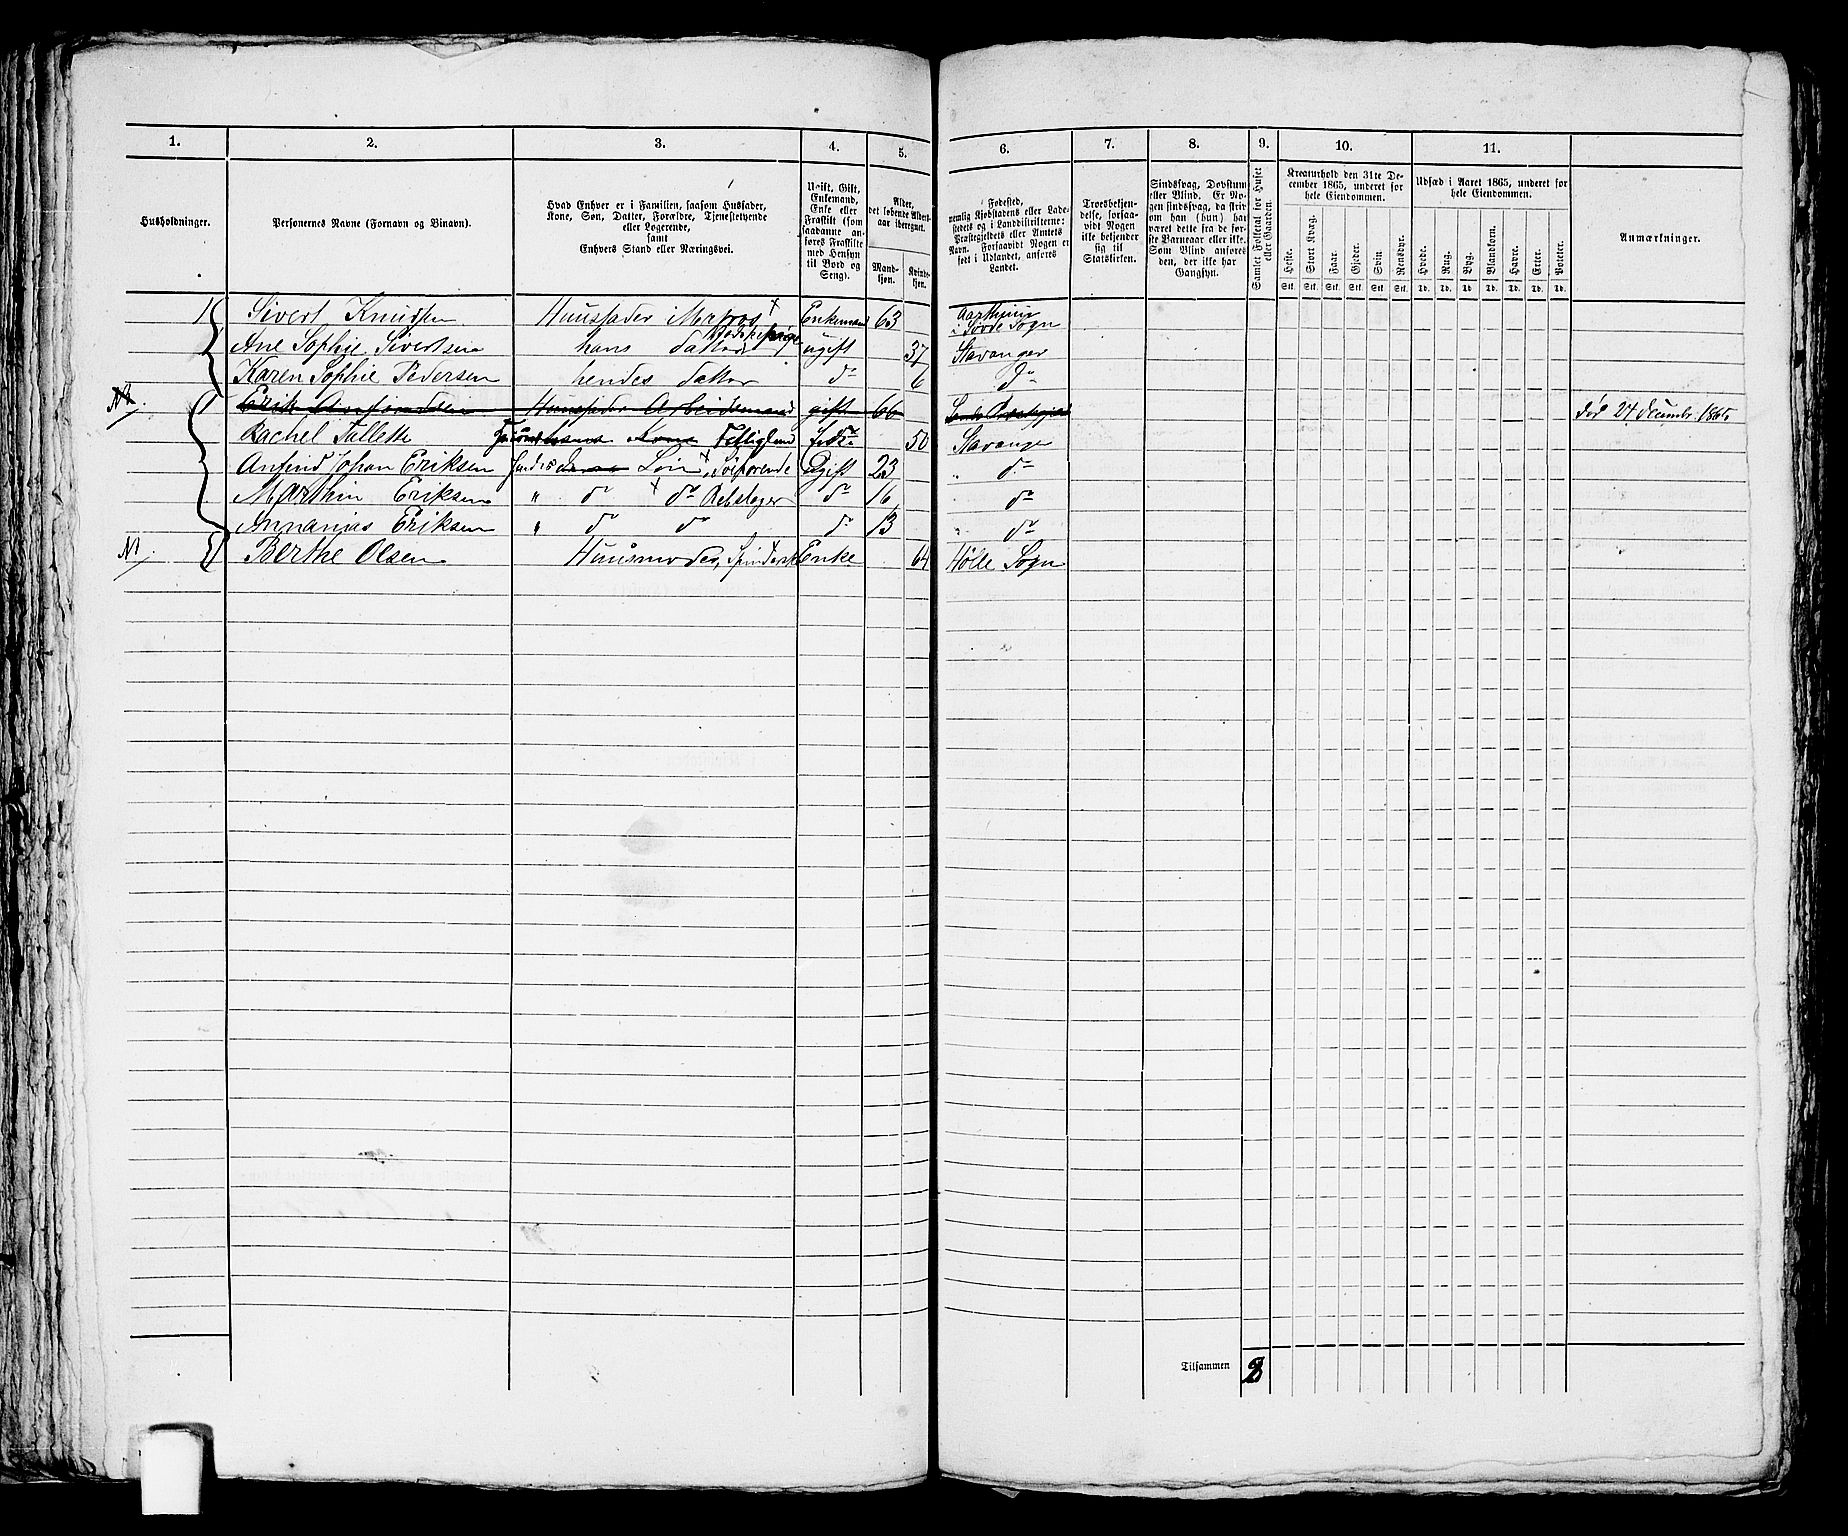 1. 2. 3. 4. 5. 6. 7. 8. 9. 10. 11.
Husholdninger.
Personernes Navne (Fornavn og Binavn).
Hvad Enhver er i Familien, saasom Husfader,
Kone, Søn, Datter, Forældre, Tjenestetyende
eller Logerende,
samt
Enhvers Stand eller Næringsvei.
Ugift, Gift,
Enkemand,
Enke eller
Fraskilt (som
saadanne an-
føres Fraskilte
med Hensyn
til Bord og
Seng).
Alder,
det løbende Alders-
aar iberegnet.
Mand-
kjøn.
Kvinde-
kjøn.
Fødested,
nemlig Kjøbstadens eller Lade-
stedets og i Landdistrikterne:
Præstegjeldets eller Amtets
Navn. Forsaavidt Nogen er
født i Udlandet, anføres
Landet.
Troesbekjen-
delse, forsaa-
vidt Nogen
ikke bekjender
sig til
Statskirken.
Sindssvag, Døvstum
eller Blind. Er No-
gen sindssvag, da skriv
om han (hun) har
været dette fra de før-
ste Barneaar eller ikke.
Som Blind anføres
den, der ikke har
Gangsyn.
Samlet Folketal for Huset
eller Gaarden.
Kreaturhold den 31te De-
cember 1865, underet for
hele Eiendommen.
Heste. Stort Kvæg. Faar. Gjeder. Svin Rensdyr.
Stk. Stk. Stk. Stk. Stk. Stk.
Udsæd i Aaret 1865, underet for
hele Eiendommen.
Hvede. Rug. Byg. Blandkorn. Havre. Erter. Poteter.
Td. Td. Td. Td. Td. Td. Td.
Anmærkninger.
1 Sivert Knudsen Huusfader Matros Enkemand 63 i Søvde Sogn
Ane Sophie Sivertsen hans Datter ugift 37 Stavanger
Karen Sophie Pedersen hendes Datter do 6 do
Huusfader Arbeidsmand gift 66 død 24 decembr 1865
Rachel Tallette hans Kone Fattiglem Enke 50 Stavanger
Anfind Johan Eriksen Søn, Søfarende Ugift 23 do
Marthin Eriksen " do do Rebslager do 16 do
Annanias Eriksen " do do do 13 do
Berthe Olsen Huusmoder, Spinderske Enke 64 Hølle Sogn
Tilsammen 8